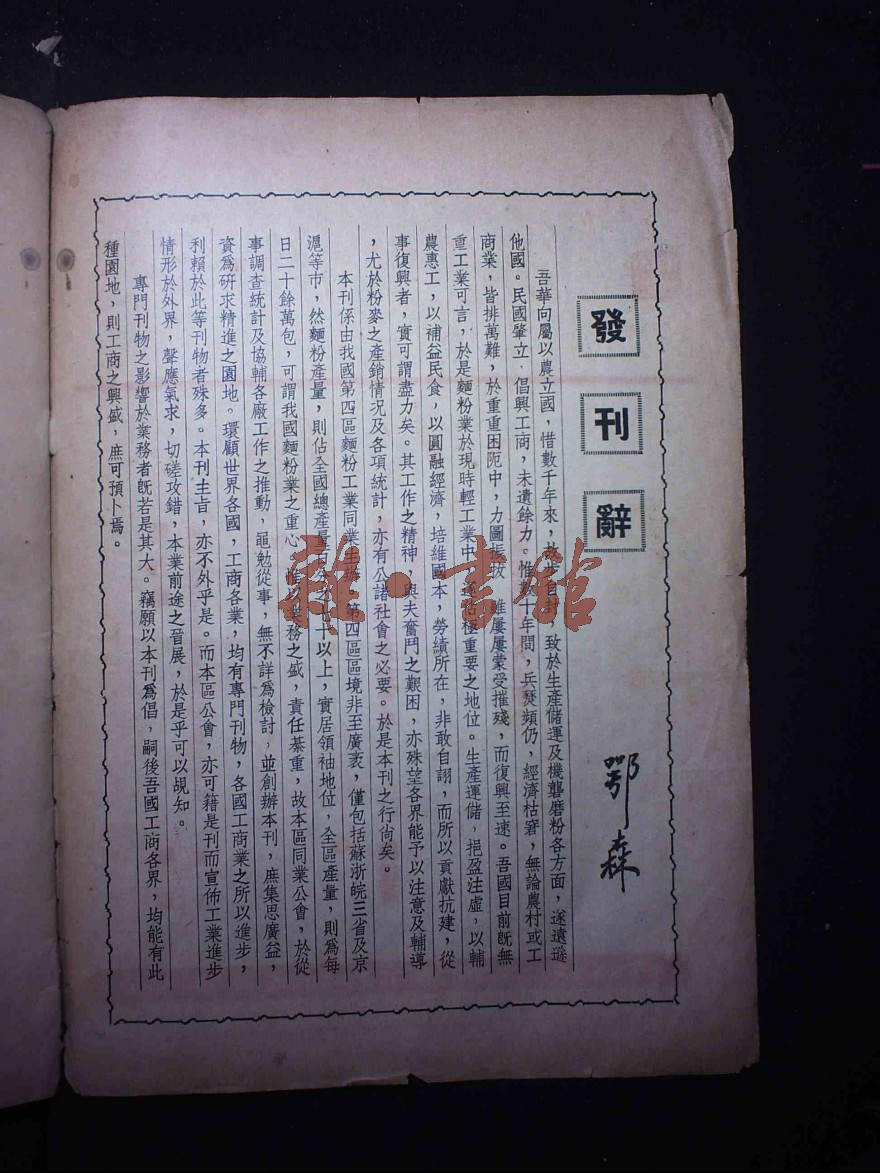 發刊辭
鄂森
吾華向屬以農立國，惜數千年來，故步自封，致於生產儲運及機礱磨粉各方面，遂遠遜
他國。民國肇立，倡興工商，未遺餘力。惟數十年間，兵燹頻仍，經濟枯窘，無論農村或工
商業，皆排萬難，於重重困阨中，力圖振拔，雖屢屢蒙受摧殘，而復興至速。吾國目前既無
重工業可言，於是麵粉業於現時輕工業中，遂佔極重要之地位。生產運儲，挹盈注虛，以輔
農惠工，以補益民食，以圓融經濟，培維國本，勞績所在，非敢自詡，而所以貢獻抗建，從
事復興者，實可謂盡力矣。其工作之精神，與夫奮鬥之艱困，亦殊望各界能予以注意及輔導
，尤於粉麥之產銷情況及各項統計，亦有公諸社會之必要。於是本刊之行尙矣。
本刊係由我國第四區麵粉工業同業主辦，第四區區境非至廣袤，僅包括蘇浙皖三省及京
滬等市，然麵粉產量，則佔全國總產量百分之七十以上，實居領袖地位，全區產量，則爲每
日二十餘萬包，可謂我國麵粉業之重心，惟以業務之盛，責任綦重，故本區同業公會，於從
事調查統計及協輔各廠工作之推動，黽勉從事，無不詳爲檢討，並創辦本刊，庶集思廣益，
資爲研求精進之園地。環顧世界各國，工商各業，均有專門刊物，各國工商業之所以進步，
利賴於此等刊物者殊多。本刊主旨，亦不外乎是。而本區公會，亦可籍是刊而宣佈工業進步
情形於外界，聲應氣求，切磋攻錯，本業前途之晉展，於是乎可以覘知。
專門刊物之影響於業務者既若是其大。竊願以本刊爲倡，嗣後吾國工商各界，均能有此
種園地，則工商之興盛，庶可預卜焉。
雜·書館